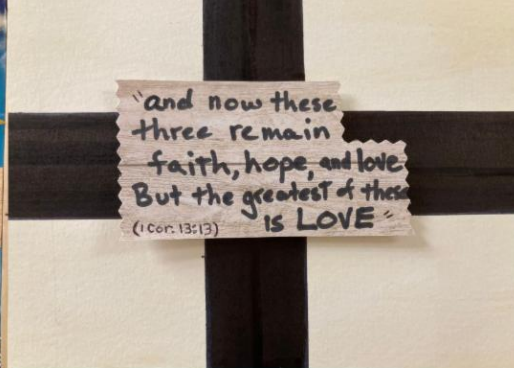 "and now these
three remain
faith, hope, and love
But the greatest of these
(1 Cor. 13:13) is LOVE"